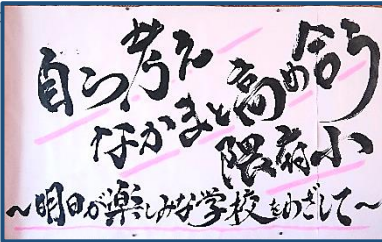 自ら考え
なかまと高め合う
隈府小
～明日が楽しみな学校をめざして～